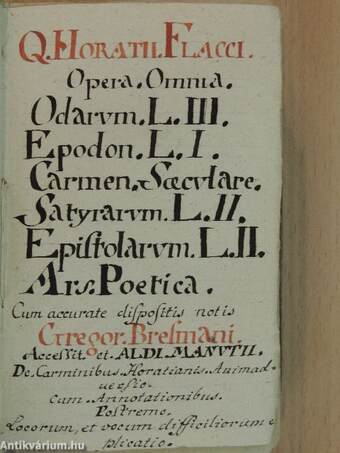 Q. HORATII. FLACCI.
Opera. Omnia.
Odarvm. L. III.
Epodon. L. I.
Carmen. Sœculare.
Satyrarvm. L. II.
Epistolarvm. L. II.
Ars. Poetica.
Cum accurate dispositis notis
Gregor. Bresmani.
Accessit. et. ALDI. MANVTII.
De. Carminibus. Horatianis. Animad
uersio.
cum. Annotationibus.
Postremo.
Locorum, et vocum difficiliorum e
plicatio.
Antikvárium.hu